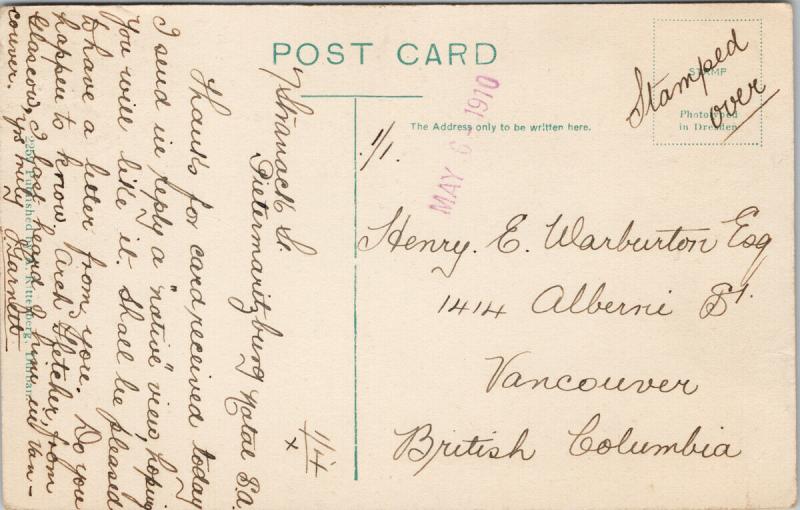 POST CARD
7 Stranack St.
Pietermaritzburg Natal S.A.
1/4
x
Thanks for card, received today
I send in reply a "native" view, hoping
you will like it. Shall be pleased
to have a letter from you. Do you
happen to know, Arch Fletcher, from
Glascow, I last heard of him in Van-
couver.
Yrs truly
Garnett
Published by A. Rittenberg, Durban.
MAY 6 1910
The Address only to be written here.
STAMP
Phototyped
in Dresden
Stamped
over
1/1.
Henry. E. Warburton Esq
1414 Alberni St.
Vancouver
British Columbia